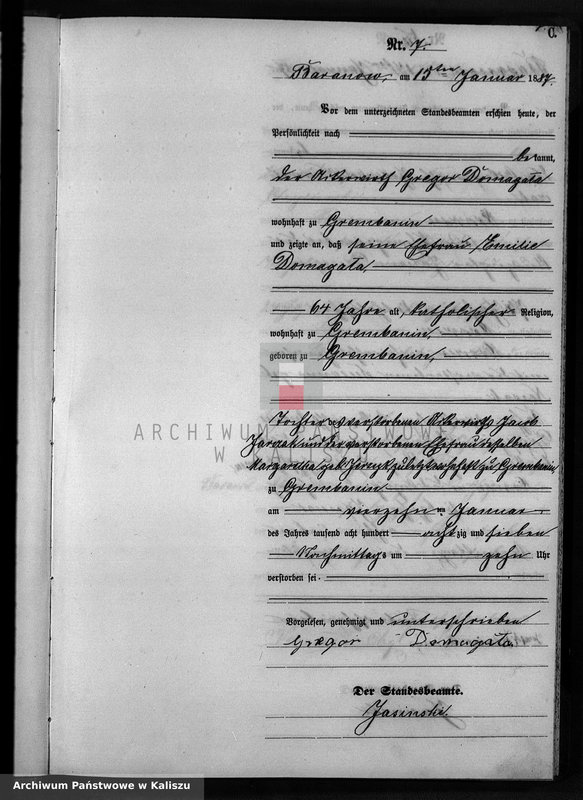 C.
Nr. 7.
Baranow, am 15ten Januar 1887.
Vor dem unterzeichneten Standesbeamten erschien heute, der
Persönlichkeit nach
bekannt,
der Ackerwirth Gregor Domagała
wohnhaft zu Grembanin
und zeigte an, daß seine Ehefrau Emilie
Domagała,
64 Jahre alt, katholischer Religion,
wohnhaft zu Grembanin,
geboren zu Grembanin,
Tochter des verstorbenen Ackerwirths Jacob
und der verstorbenen Ehefrau desselben
Margaretha geb. zuletzt wohnhaft zu Grembanin
zu Grembanin
am vierzehnten Januar
des Jahres tausend acht hundert achtzig und sieben
Nachmittags um zehn Uhr
verstorben sei.
Vorgelesen, genehmigt und unterschrieben
Gregor Domagała.
Der Standesbeamte.
Jasinski.
ARCHIWUM PAŃSTWOWE
W KALISZU
Archiwum Państwowe w Kaliszu